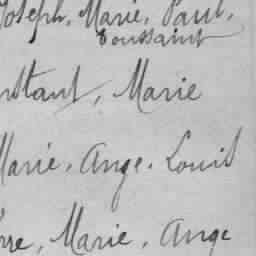 Joseph, Marie, Paul,
Toussaint
nstant, Marie
Marie, Ange, Louis
rre, Marie, Ange